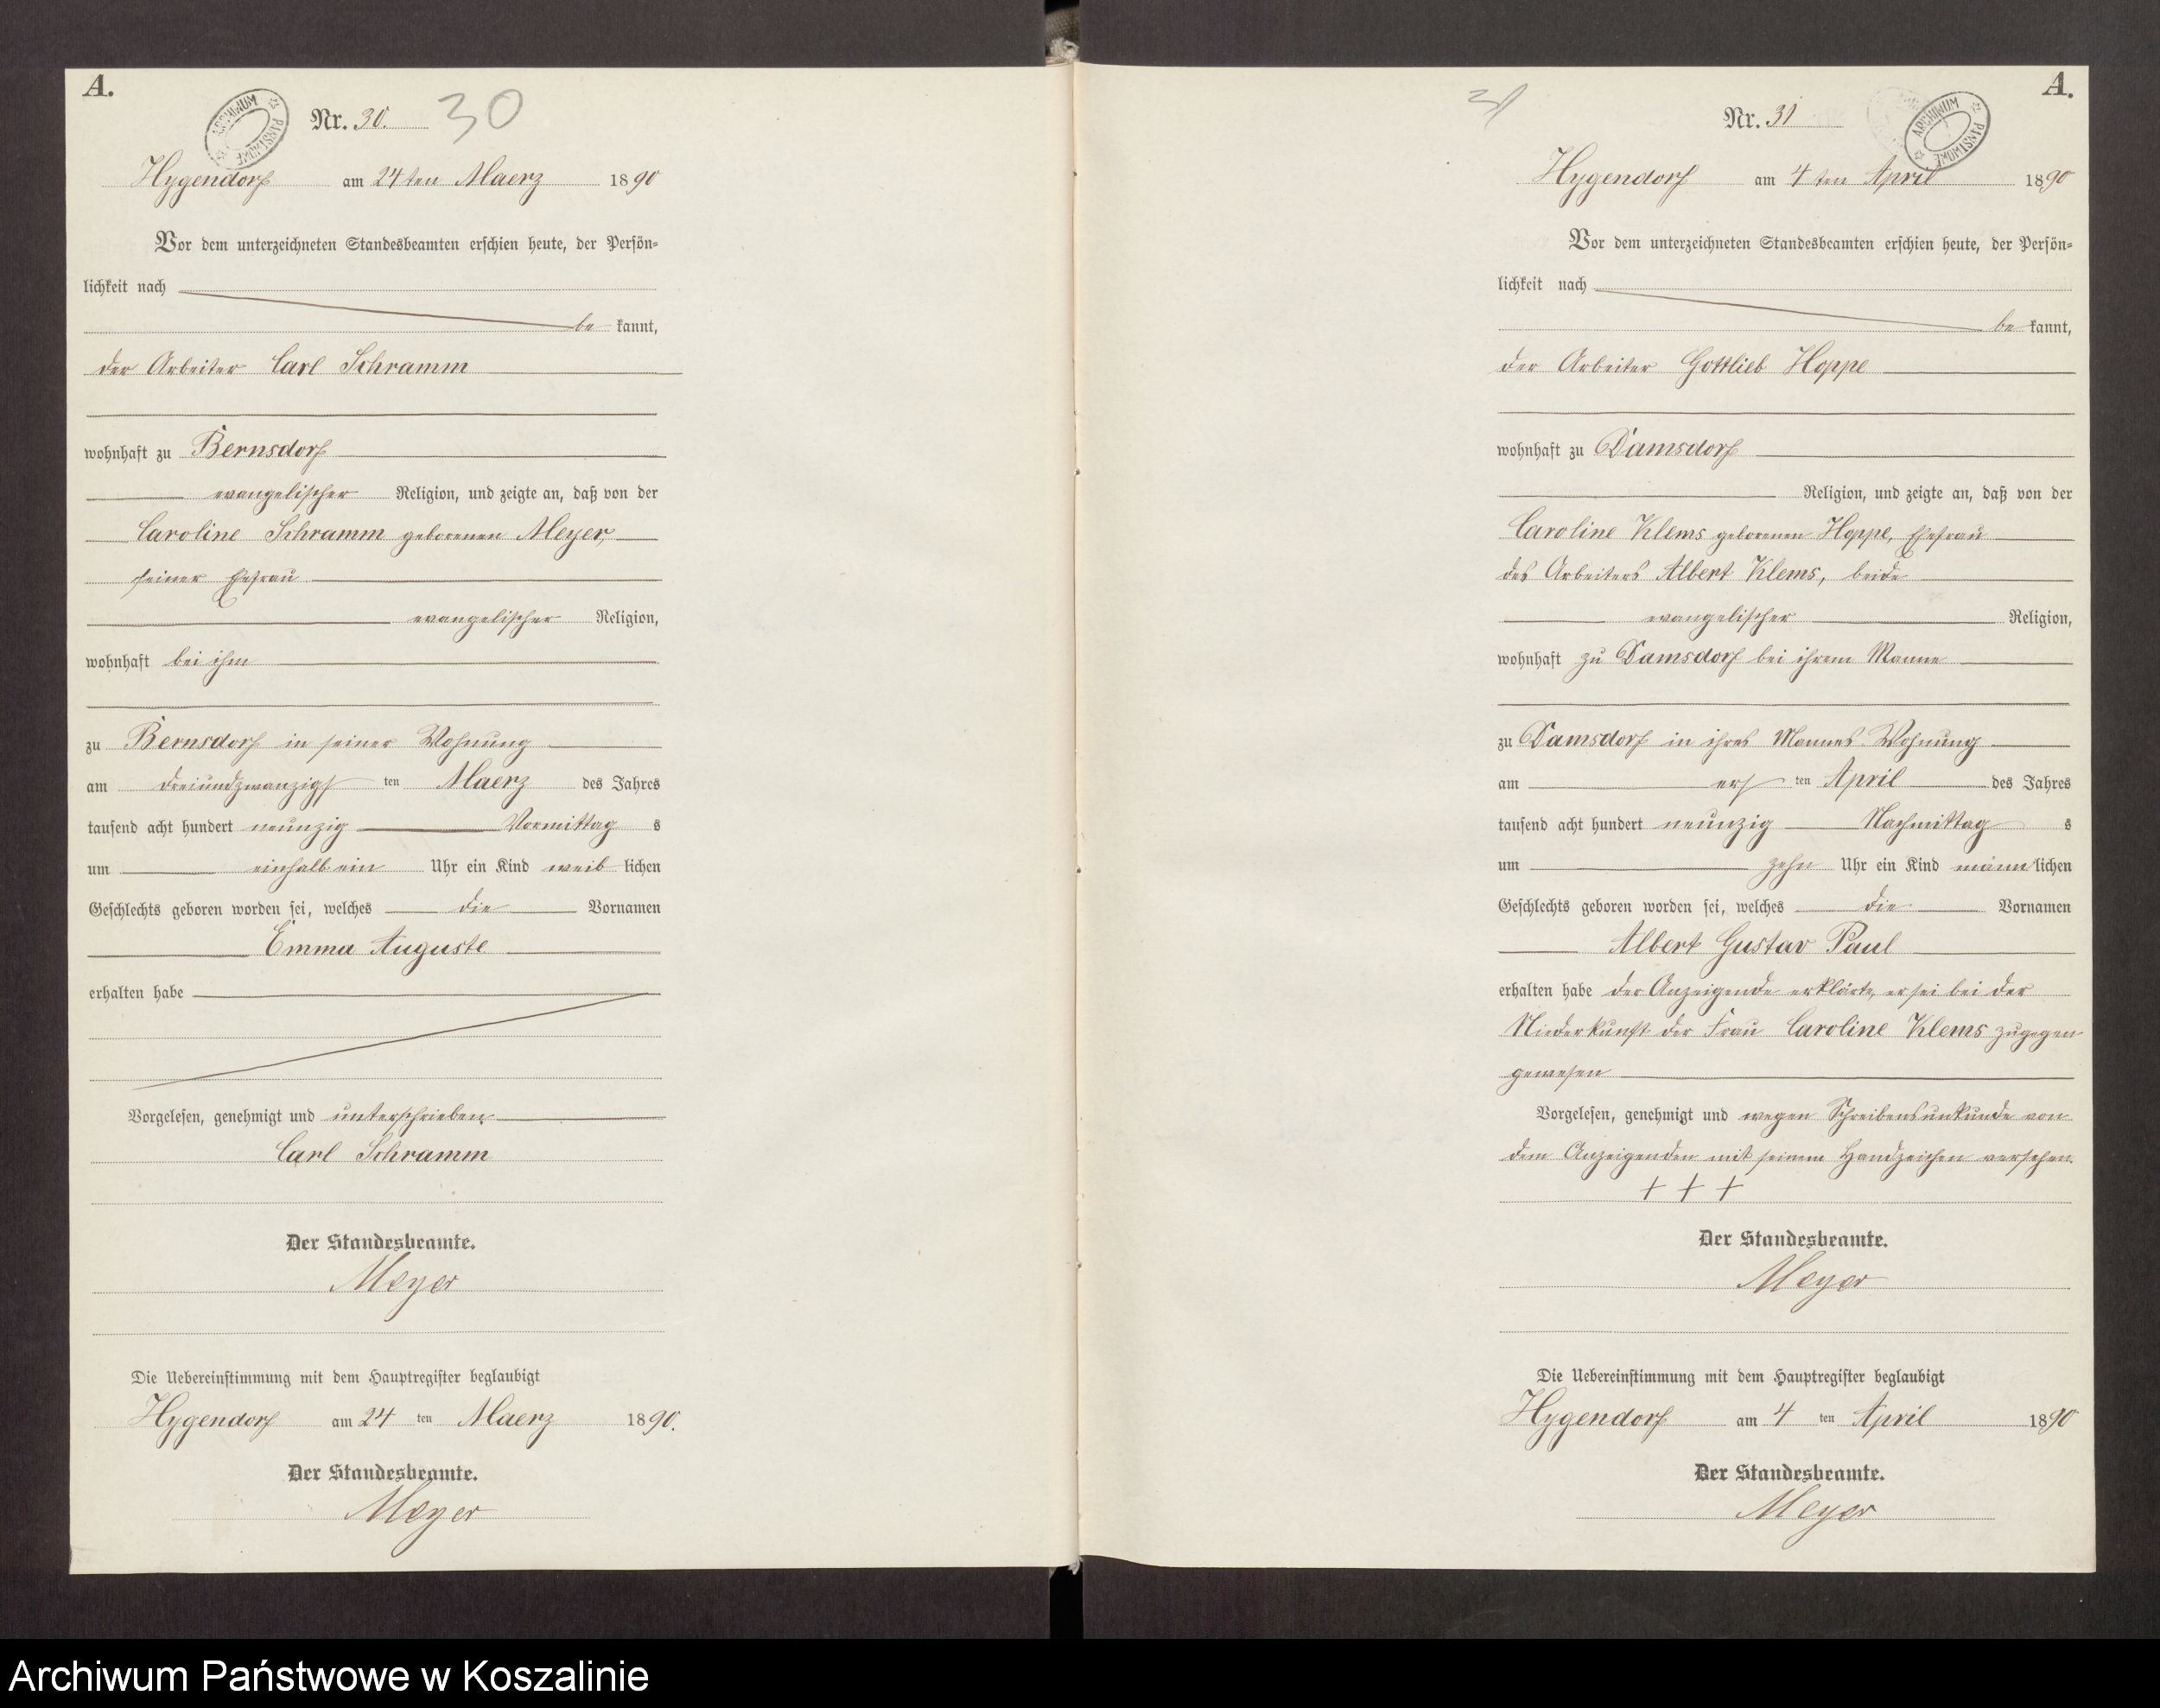 A.
ARCHIWUM PAŃSTWOWE
Nr. 30. 30
Hygendorf am 24ten Maerz 1890
Vor dem unterzeichneten Standesbeamten erschien heute, der Persön-
lichkeit nach
be kannt,
der Arbeiter Carl Schramm
wohnhaft zu Bernsdorf
evangelischer Religion, und zeigte an, daß von der
Caroline Schramm geborenen Meyer,
seiner Ehefrau
evangelischer Religion,
wohnhaft bei ihm
zu Bernsdorf in seiner Wohnung
am dreiundzwanzigsten Maerz des Jahres
tausend acht hundert neunzig Vormittags
um einhalb ein Uhr ein Kind weiblichen
Geschlechts geboren worden sei, welches die Vornamen
Emma Auguste
erhalten habe
Vorgelesen, genehmigt und unterschrieben.
Carl Schramm
Der Standesbeamte.
Meyer
Die Uebereinstimmung mit dem Hauptregister beglaubigt
Hygendorf am 24 ten Maerz 1890.
Der Standesbeamte.
Meyer
A.
ARCHIWUM PAŃSTWOWE
31
Nr. 31
Hygendorf am 4ten April 1890
Vor dem unterzeichneten Standesbeamten erschien heute, der Persön-
lichkeit nach
be kannt,
der Arbeiter Gottlieb Hoppe
wohnhaft zu Damsdorf
Religion, und zeigte an, daß von der
Caroline Klems geborenen Hoppe, Ehefrau
des Arbeiters Albert Klems, beide
evangelischer Religion,
wohnhaft zu Damsdorf bei ihrem Manne
zu Damsdorf in ihres Mannes Wohnung
am ersten April des Jahres
tausend acht hundert neunzig Nachmittags
um zehn Uhr ein Kind männlichen
Geschlechts geboren worden sei, welches die Vornamen
Albert Gustav Paul
erhalten habe der Anzeigende erklärte, er sei bei der
Niederkunft der Frau Caroline Klems zugegen
gewesen
Vorgelesen, genehmigt und wegen Schreibensunkunde von
dem Anzeigenden mit seinem Handzeichen versehen.
+ + +
Der Standesbeamte.
Meyer
Die Uebereinstimmung mit dem Hauptregister beglaubigt
Hygendorf am 4 ten April 1890
Der Standesbeamte.
Meyer
Archiwum Państwowe w Koszalinie